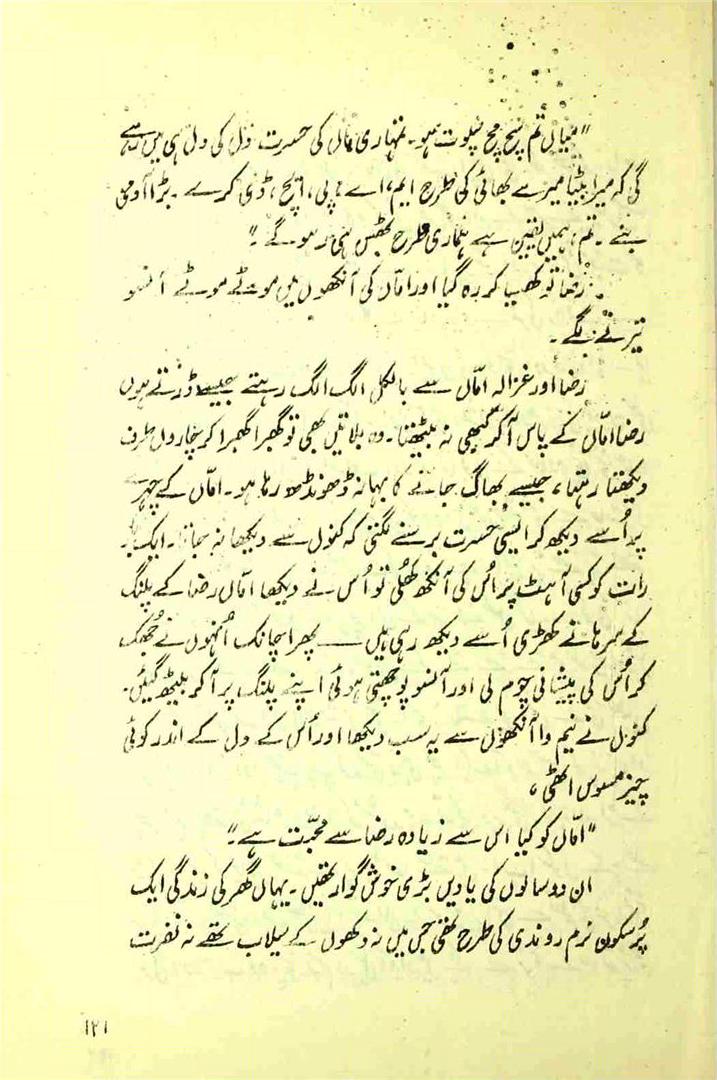 "میاں تم سچ مچ سپوت ہو۔ تمہاری ماں کی حسرت دل کی دل ہی میں رہے
گی کہ میرا بیٹا میرے بھائی کی طرح ایم، اے، پی، ایچ، ڈی کرے۔ بڑا آدمی
بنے۔ تم، ہمیں یقین ہے ہماری طرح ٹھس ہی رہو گے۔"
رضا تو کھب کر رہ گیا اور اماں کی آنکھوں میں موٹے موٹے آنسو
تیرنے لگے۔
رضا اور غزالہ امّاں سے بالکل الگ الگ رہتے جیسے ڈرتے ہوں
رضا امّاں کے پاس آ کر کبھی نہ بیٹھتا۔ وہ بلاتیں بھی تو گھبرا گھبرا کر چاروں طرف
دیکھتا رہتا، جیسے بھاگ جانے کا بہانہ ڈھونڈھ رہا ہو۔ امّاں کے چہرے
پر اُسے دیکھ کر ایسی حسرت برسنے لگتی کہ کنول سے دیکھا نہ جاتا۔ ایک
رات کو کسی آہٹ پر اُس کی آنکھ کھلی تو اُس نے دیکھا امّاں رضا کے پلنگ
کے سرہانے کھڑی اُسے دیکھ رہی ہیں — پھر اچانک اُنہوں نے جُھک
کر اُس کی پیشانی چوم لی اور آنسو پوچھتی ہوئی اپنے پلنگ پر آ کر بیٹھ گئیں۔
کنول نے نیم وا آنکھوں سے یہ سب دیکھا اور اُس کے دل کے اندر کوئی
چیز مسوس اٹھی،
"امّاں کو کیا اس سے زیادہ رضا سے محبّت ہے۔"
ان دو سالوں کی یادیں بڑی خوش گوار تھیں۔ یہاں گھر کی زندگی ایک
پُر سکون نرم رو ندی کی طرح تھی جس میں نہ دکھوں کے سیلاب تھے نہ نفرت
۱۲۱